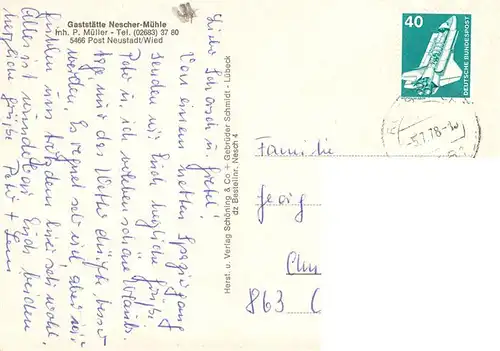 Gaststätte Nescher-Mühle
Inh. P. Müller - Tel. (02683) 37 80
5466 Post Neustadt/Wied
Liebe Schorsch u. Gretel!
Von einem netten Spaziergang
senden wir Euch herzliche Grüße
Tour u. ich wünschen schöne Urlaubs-
tage nur das Wetter dürfte besser
werden. Es regnet sehr viel aber wir
fühlen uns trotzdem hier sehr wohl.
Alles ist wunderbar Euch beiden
herzliche Grüße
Herst. u. Verlag Schöning & Co + Gebrüder Schmidt - Lübeck
dz Bestellnr. Nesch 4
40
DEUTSCHE BUNDESPOST
-5.7.78-
Familie
Georg
863 C